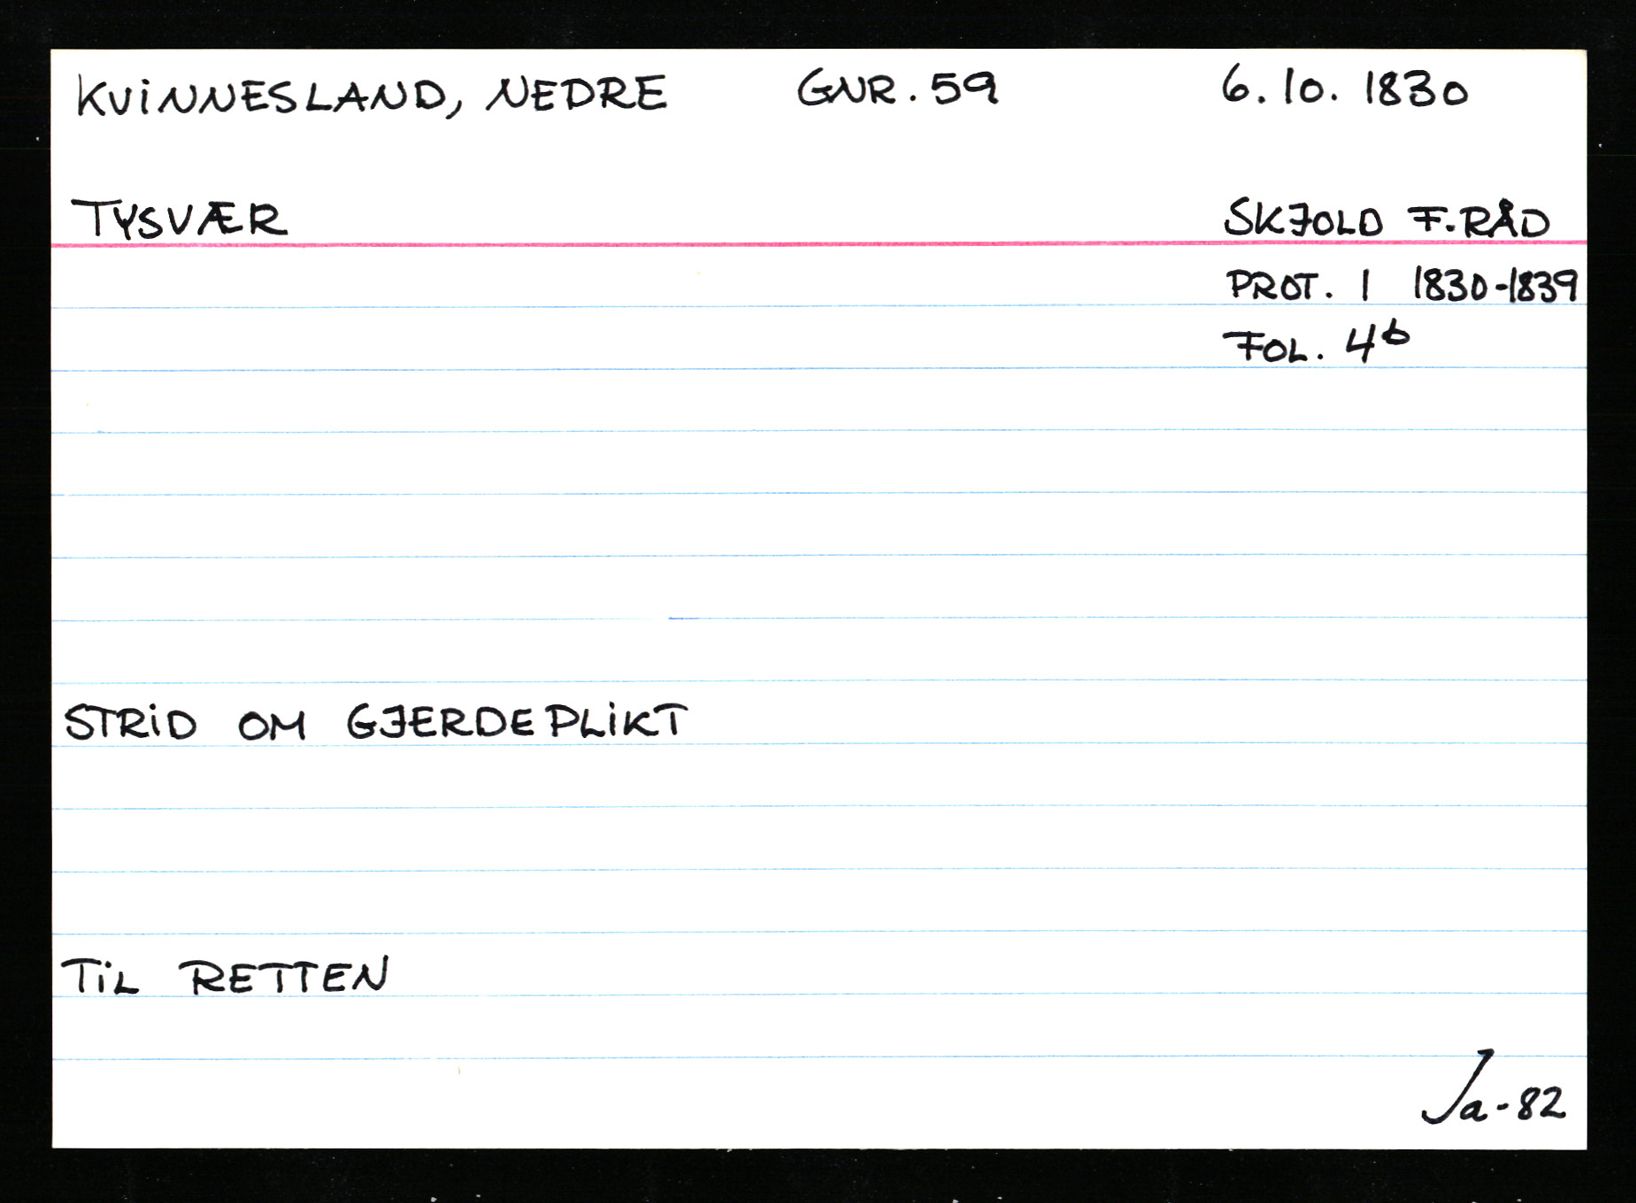 KVINNESLAND, NEDRE GNR. 59 6. 10. 1830
TYSVÆR SKJOLD F.RÅD
PROT. 1 1830-1839
FOL. 4b
STRID OM GJERDEPLIKT
TIL RETTEN
Ja-82